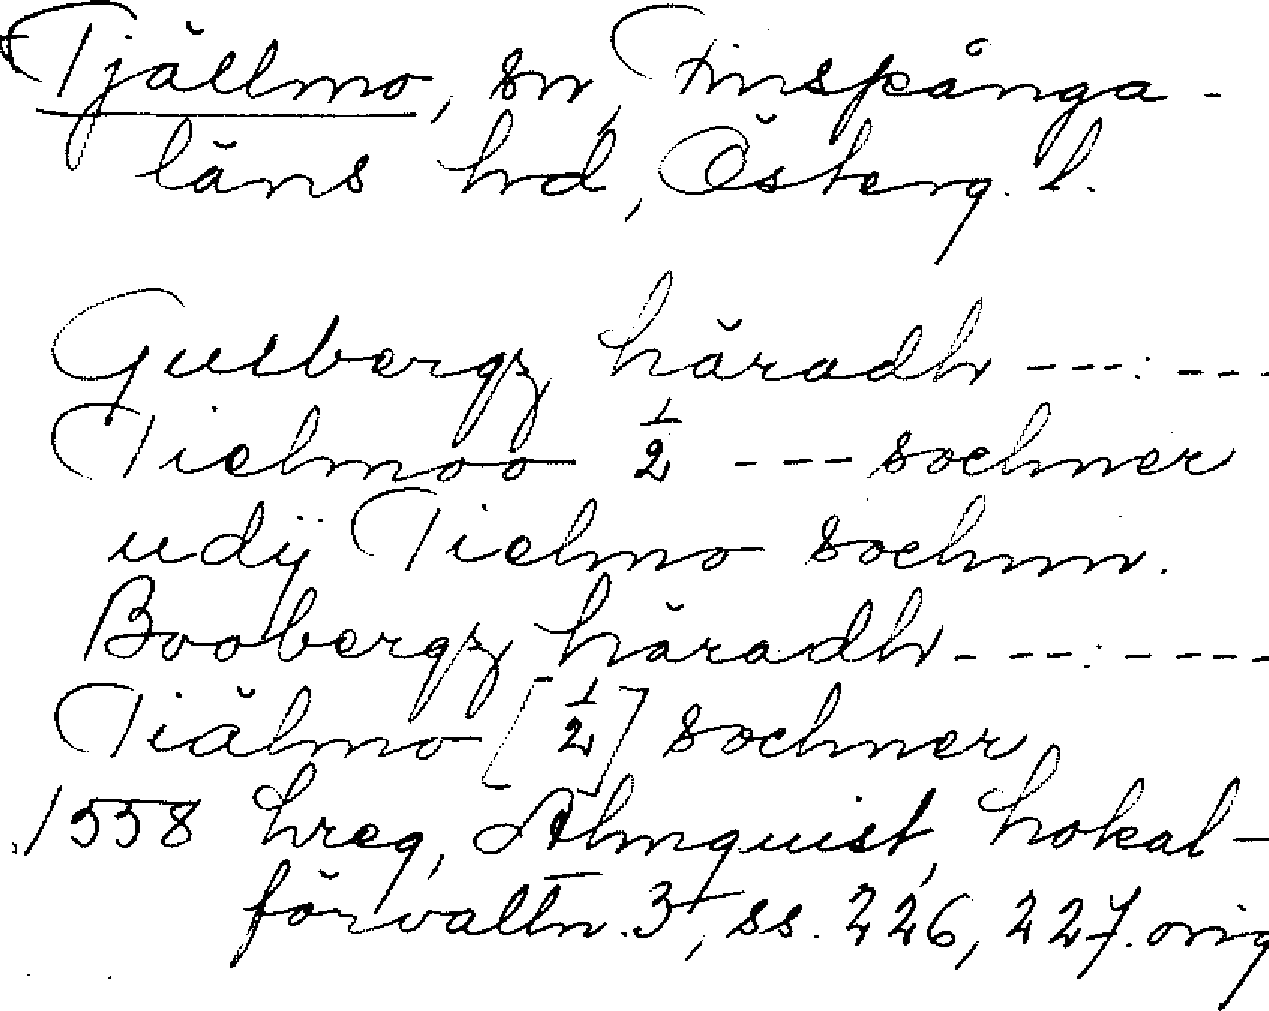 Tjällmo, sn, Finspånga-
läns hd, Österg. l.
Gulbergz häradh ---:---
Tielmoo ½ --- sochner
udij Tielmo sochnn.
Boobergz häradh ----:----
Tiälmo [½] sochner
1558 hreg, Almquist, Lokal-
förvaltn. 3, ss. 226, 227. orig